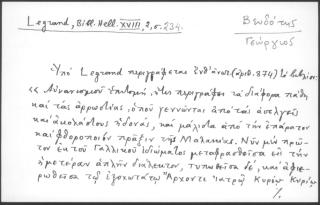 Legrand, Bibl. Hell. XVIII, 2, σ. 234.
Βενδότης
Γεώργιος
Ὑπὸ Legrand περιγράφεται ἐνθ' ἀνωτ. (ἀριθ. 874) τὸ βιβλίον:
« Αὐνανισμοῦ ἐπιτομὴ, ἥτις περιγράφει τὰ διάφορα πάθη
καὶ τὰς ἀρρωστίας, ὁποῦ γεννῶνται ἀπὸ τὰς ἀσελγεῖς
καὶ ἀκολάστους ἡδονὰς, καὶ μάλιστα ἀπὸ τὴν ἐπάρατον
καὶ φθοροποιὸν πρᾶξιν τῆς Μαλακίας. Νῦν μὲν πρῶ-
τον ἐκ τοῦ Γαλλικοῦ ἰδιώματος μεταφρασθεῖσα εἰς τὴν
ἡμετέραν ἁπλῆν διάλεκτον, τυπωθεῖσα δὲ, καὶ ἀφιε-
ρωθεῖσα τῷ ἐξοχωτάτῳ Ἄρχοντι ἰατρῷ Κυρίῳ Κυρίῳ
/.